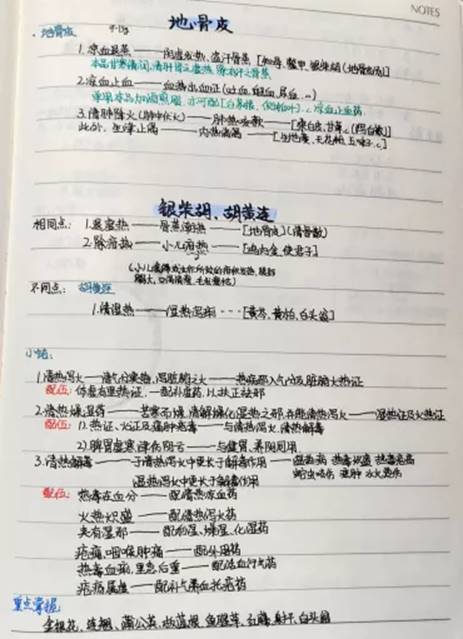 NOTES
地骨皮
地骨皮
1.凉血退蒸——阴虚发热、盗汗骨蒸[知母、鳖甲、银柴胡(地骨皮汤)]
本品甘寒清润,清肝肾之虚热,除有汗之骨蒸
2.凉血止血——血热出血证(吐血、衄血、尿血...)
3.清肺降火(肺中伏火)——肺热咳嗽——[桑白皮、甘草
此外,生津止渴——内热消渴——[生地黄、天花粉、五味子
银柴胡、胡黄连
相同点: 1.退虚热——骨蒸潮热——[地骨皮](清骨散)
2.除疳热——小儿疳热——[鸡内金、使君子]
不同点: 胡黄连
1.清湿热——湿热泻痢---[黄芩、黄柏、白头翁]
小结:
1.清热泻火——清气分实热、泻脏腑之火——热病邪入气分及脏腑火热证
配伍: 体虚有里热证,—配补虚药,以扶正祛邪
2.清热燥湿药——苦寒而燥,清解燥化湿热之邪,并能清热泻火——湿热证及火热证
配伍: 1).热证、火证及痈肿病毒——与清热泻火、清热解毒
2)脾胃虚寒,津伤阴亏——与健胃、养阴同用
3.清热解毒——于清热泻火中更长于解毒作用——温热病 热毒炽盛 热毒疮疡
清热泻火中更长于解毒作用 蛇虫咬伤 水火烫伤
配伍: 热毒在血分——配清热凉血药
火热炽盛——配清热泻火药
夹有湿邪——配利湿、燥湿、化湿药
疮痈、咽喉肿痛——配外用药
热毒血痢,里急后重——配活血行气药
疮疡属虚——配补气养血托疮药
重点掌握
金银花、连翘、蒲公英、板蓝根、鱼腥草、射干、白头翁